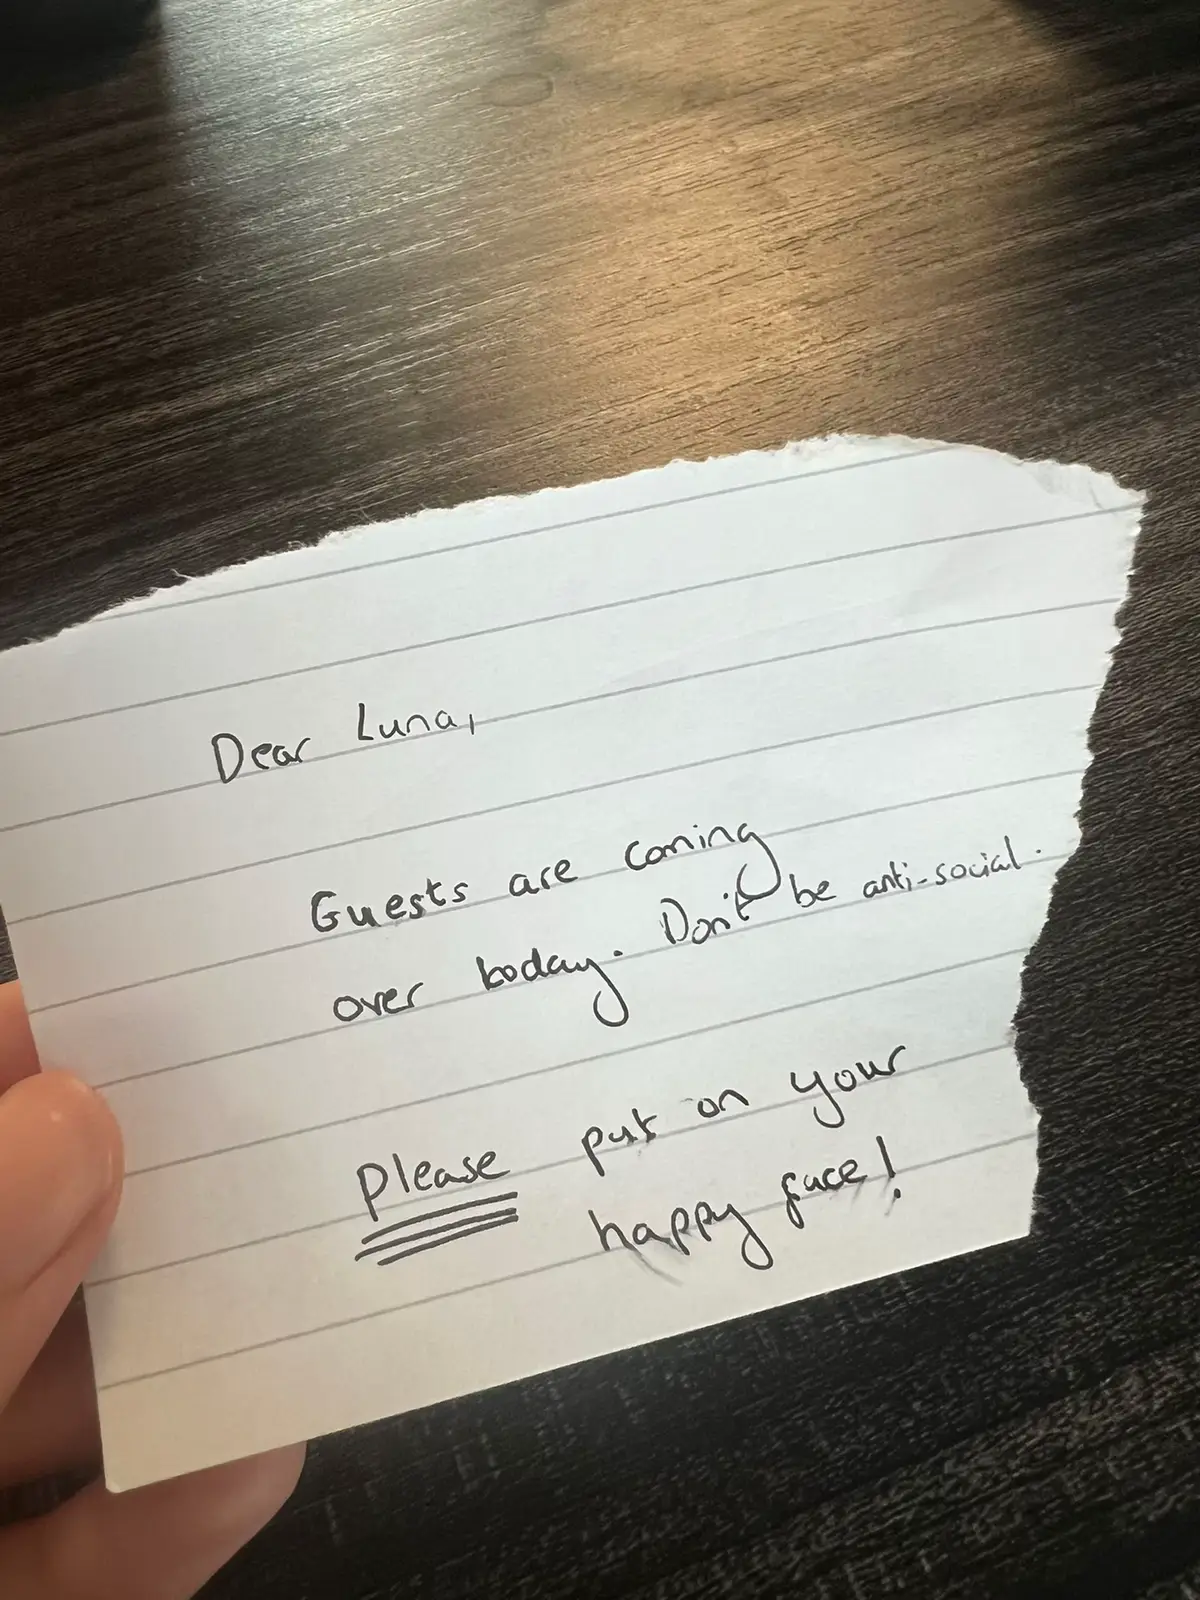 Dear Luna,
Guests are coming
over today. Don't be anti-social.
Please put on your
happy face!